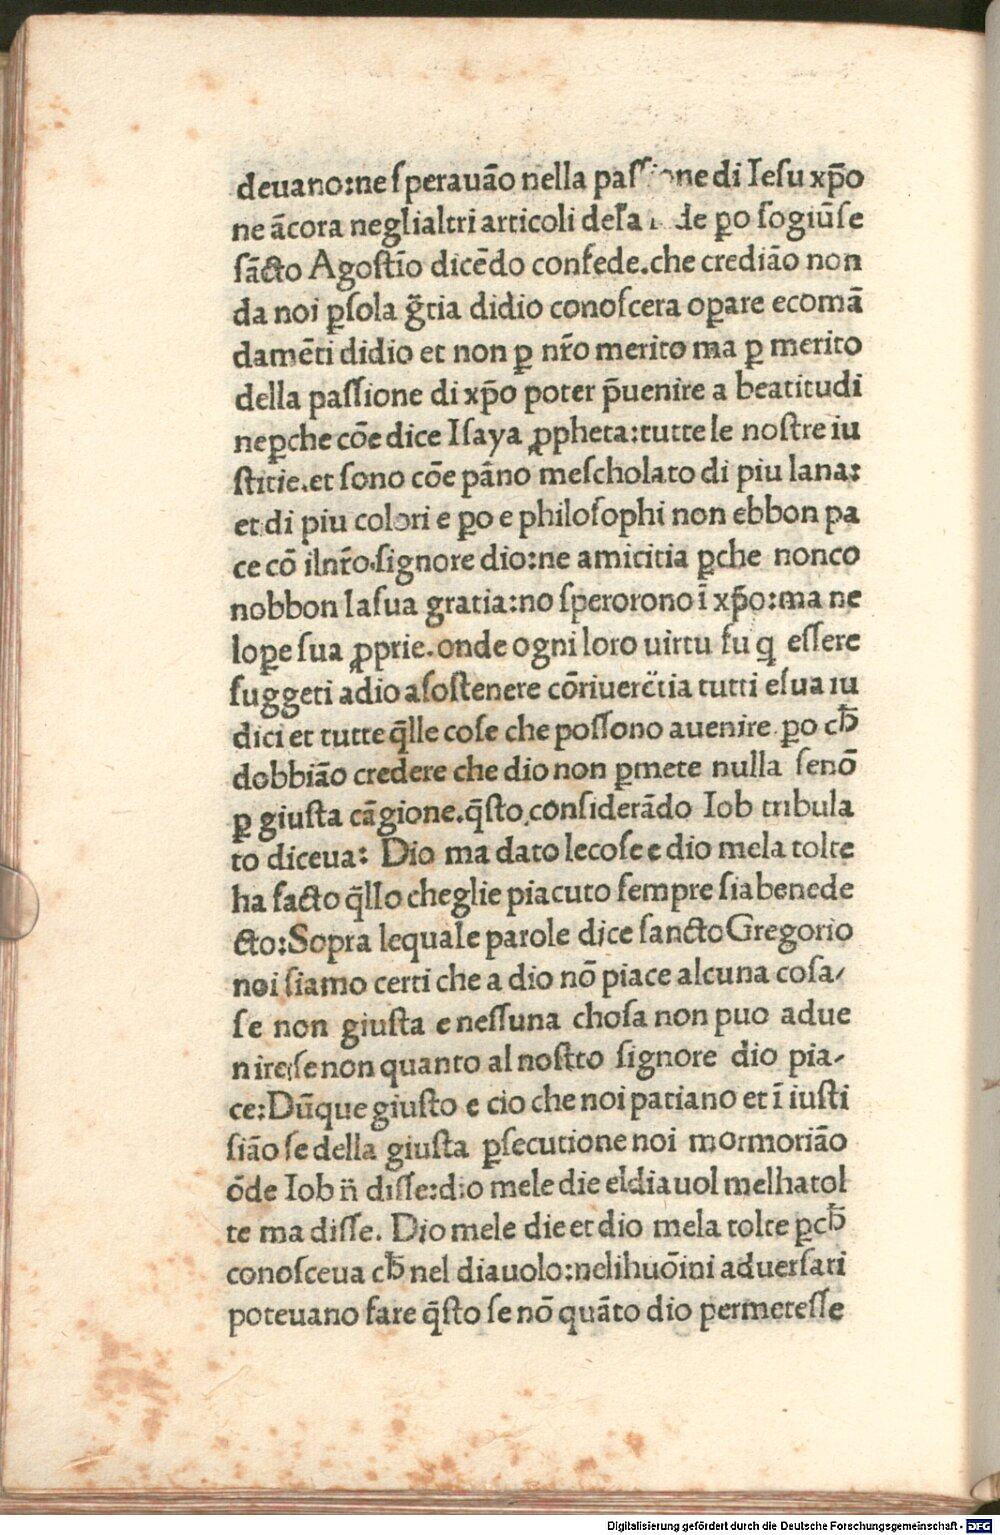 deuano:ne ſperauāo nella paſſione di Ieſu xp̄o
ne ācora neglialtri articoli de ꝑo ſogiūſe
ſācto Agoſtīo dicēdo confede.che crediāo non
da noi ꝑſola gr̄tia didio conoſcera oꝑare ecomā
damēti didio et non ꝑ nr̄o merito ma ꝑ merito
della paſſione di xp̄o poter p̄uenire a beatitudi
neꝑche cōe dice Iſaya ꝓpheta:tutte le noſtre iu
ſtitie.et ſono cōe pāno meſcholato di piu lana:
et di piu colori e ꝑo e philoſophi non ebbon pa
ce cō ilnr̄o.ſignore dio:ne amicitia ꝑche nonco
nobbon laſua gratia:no ſperorono ī xp̄o:ma ne
loꝑe ſua ꝓprie.onde ogni loro uirtu fu q eſſere
ſuggeti adio aſoſtenere cōriuerētia tutti eſua iu
dici et tutte q̄lle coſe che poſſono auenire ꝑo cħ
dobbiāo credere che dio non ꝑmete nulla ſenō
ꝑ giuſta cāgione.q̄ſto conſiderādo Iob tribula
to diceua: Dio ma dato lecoſe e dio mela tolte
ha facto q̄llo cheglie piacuto ſempre ſia benede
cto:Sopra lequale parole dice ſancto Gregorio
noi ſiamo certi che a dio nō piace alcuna coſa/
ſe non giuſta e neſſuna choſa non puo adue
nire:ſe non quanto al noſtto ſignore dio pia/
ce:Dūque giuſto e cio che noi patiano et ī iuſti
ſiāo ſe della giuſta ꝑſecutione noi mormoriāo
ōde Iob n̄ diſſe:dio mele die eldiauol melhatol
te ma diſſe. Dio mele die et dio mela tolte ꝑcħ
conoſceua cħ nel diauolo:nelihuōini aduerſari
poteuano fare q̄ſto ſe nō quāto dio permeteſſe
Digitalisierung gefördert durch die Deutsche Forschungsgemeinschaft - DFG